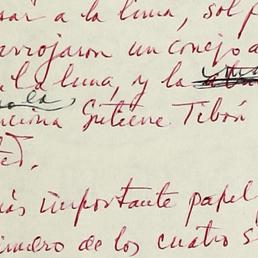 sar a la luna, sol p
arrojaron un conejo a
la luna, y la
nciona Gutierre Tibón
ted.
más importante papel
imero de los cuatro s